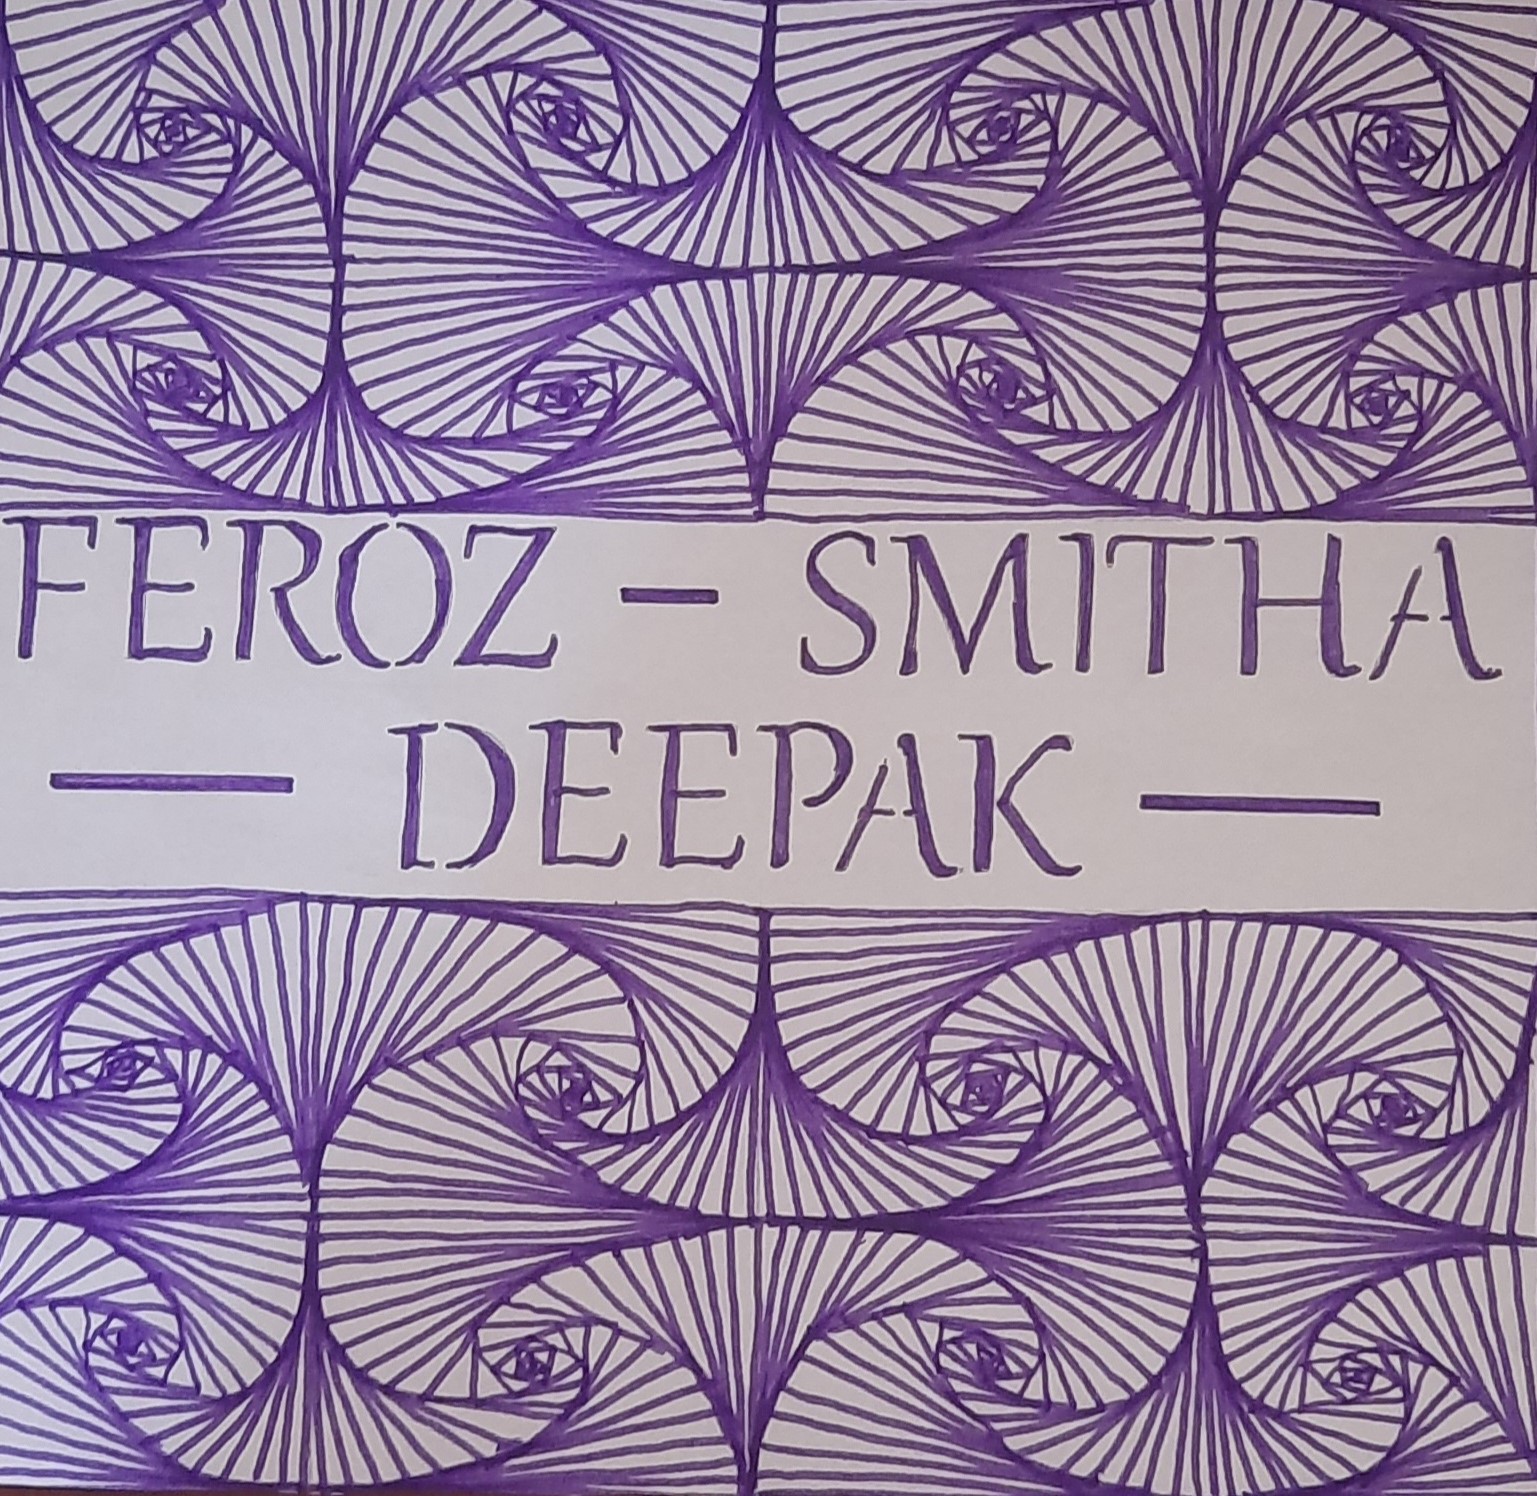 FEROZ – SMITHA
— DEEPAK —